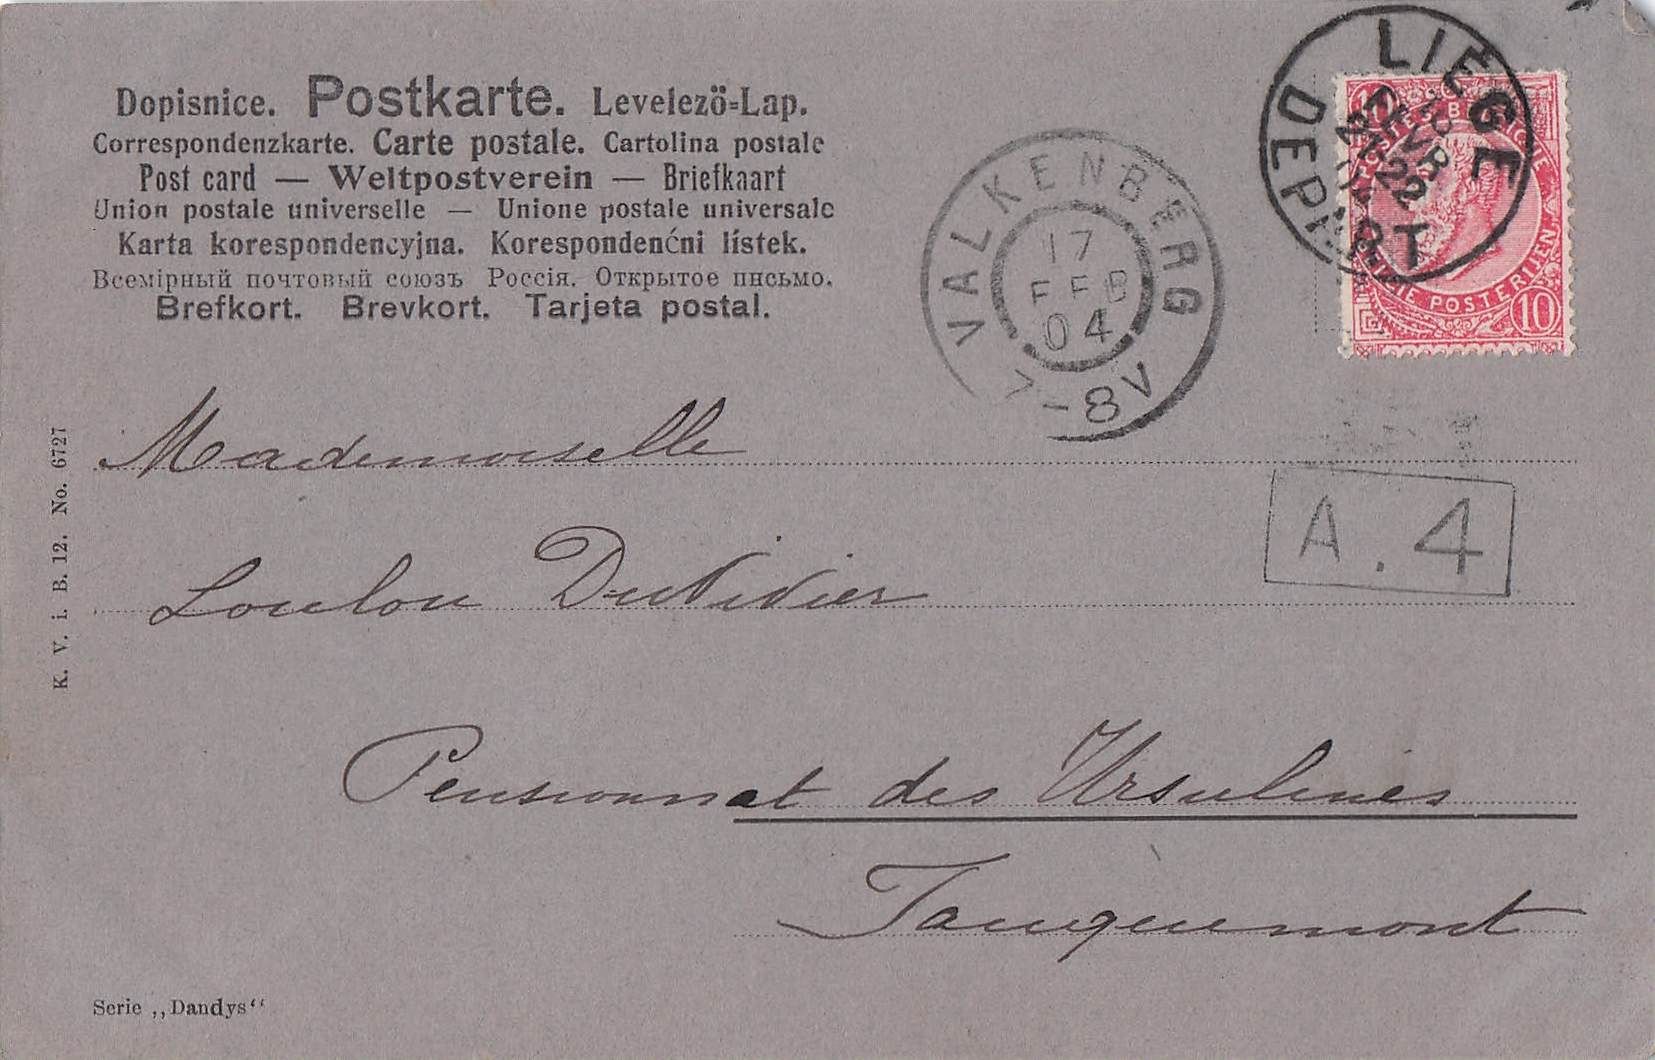 Dopisnice. Postkarte. Levelező-Lap.
Correspondenzkarte. Carte postale. Cartolina postale
Post card — Weltpostverein — Briefkaart
Union postale universelle — Unione postale universale
Karta korespondencyjna. Korespondenćni lístek.
Всемірный почтовый союзъ Россія. Открытое письмо.
Brefkort. Brevkort. Tarjeta postal.
LIEGE
22
DEPART
10
POSTERIJEN
10
VALKENBERG
17
FEB
04
7-8V
K. V. i. B. 12. No. 6727
Mademoiselle
A. 4
Loulou
Pensionnat des Ursulines
Fauquemont
Serie „Dandys“